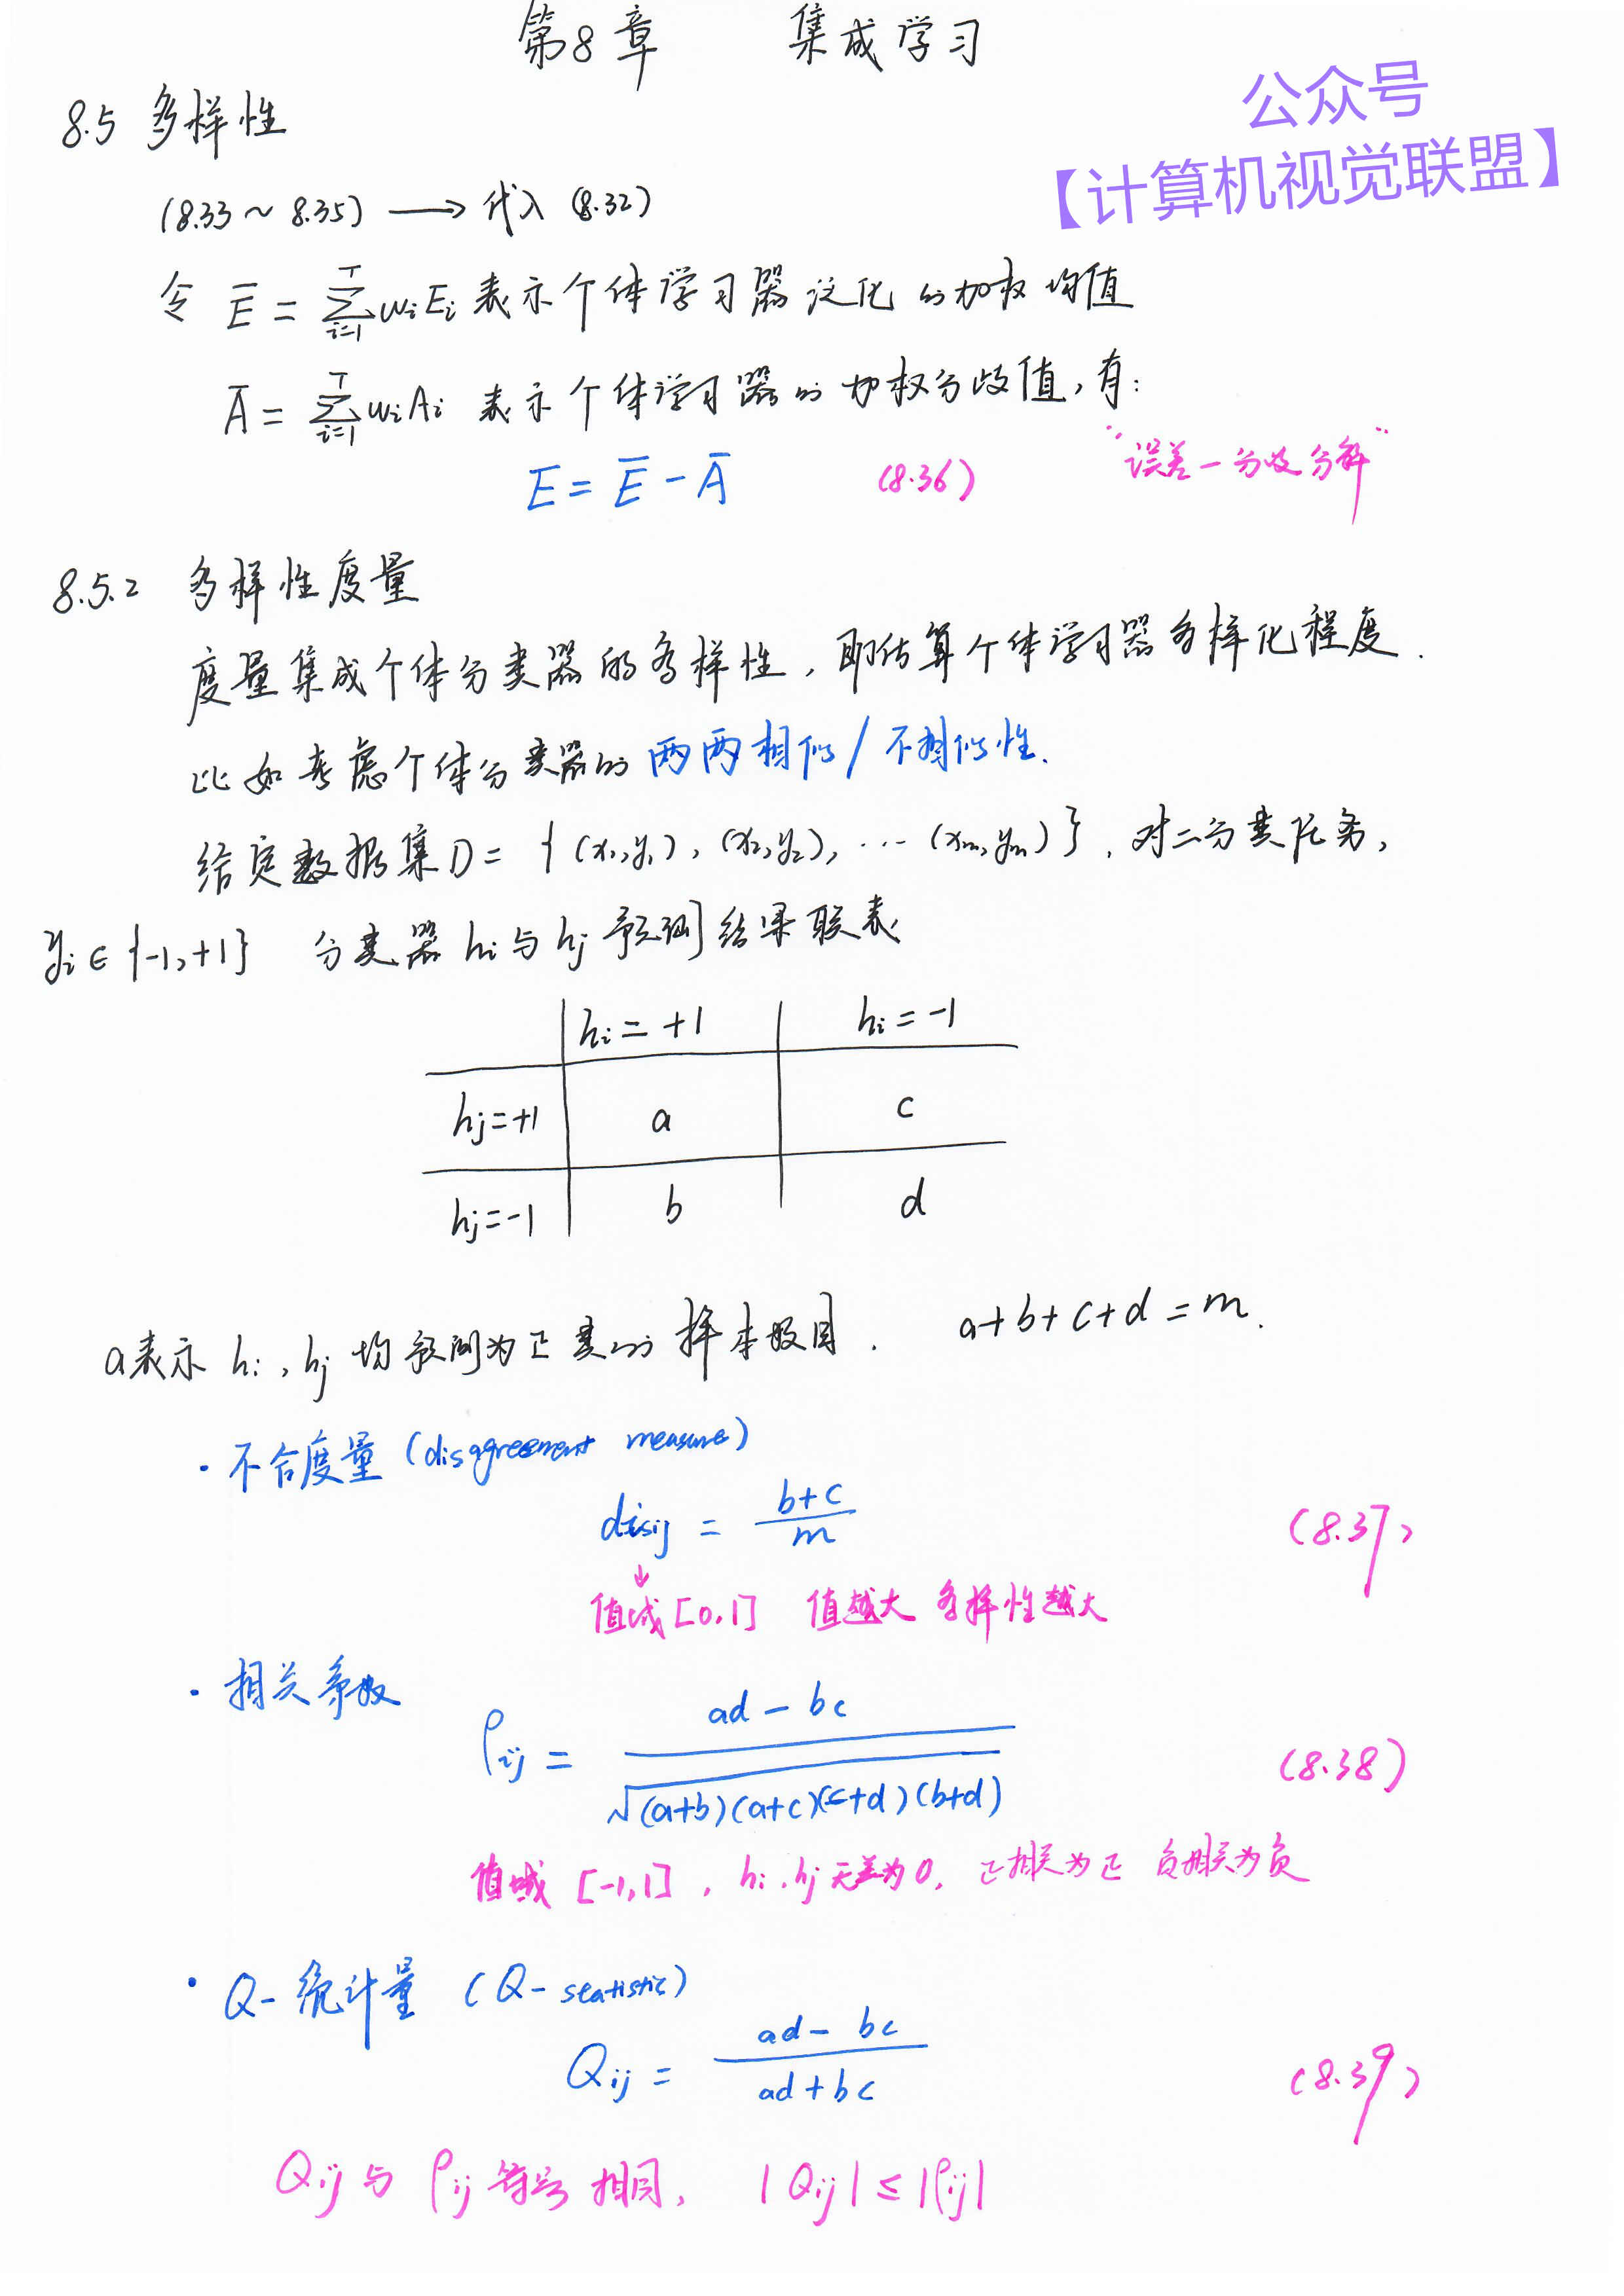 第8章 集成学习
公众号
【计算机视觉联盟】
8.5 多样性
(8.33 ~ 8.35) ⟶ 代入 (8.32)
令 E̅ = ∑_{i=1}^{T} wᵢEᵢ 表示个体学习器泛化的加权均值
A̅ = ∑_{i=1}^{T} wᵢAᵢ 表示个体学习器的加权分歧值,有:
E = E̅ - A̅ (8.36) "误差-分歧分解"
8.5.2 多样性度量
度量集成个体分类器的多样性,即估算个体学习器多样化程度.
比如考虑个体分类器的两两相似/不相似性.
给定数据集D = {(x₁,y₁), (x₂,y₂), ... (xₘ,yₘ)}, 对二分类任务,
yᵢ ∈ {-1,+1} 分类器 hᵢ 与 hⱼ 预测结果联表
hᵢ = +1 hᵢ = -1
hⱼ=+1 a c
hⱼ=-1 b d
a表示 hᵢ, hⱼ 均预测为正类的样本数目. a+b+c+d = m.
· 不合度量 (disagreement measure)
disᵢⱼ = (b+c)/m (8.37)
↓
值域[0,1] 值越大 多样性越大
· 相关系数
ρᵢⱼ = (ad - bc)/√((a+b)(a+c)(c+d)(b+d)) (8.38)
值域 [-1,1], hᵢ, hⱼ 无关为0, 正相关为正 负相关为负
· Q-统计量 (Q-statistic)
Qᵢⱼ = (ad - bc)/(ad + bc) (8.39)
Qᵢⱼ 与 ρᵢⱼ 符号相同, |Qᵢⱼ| ≤ |ρᵢⱼ|